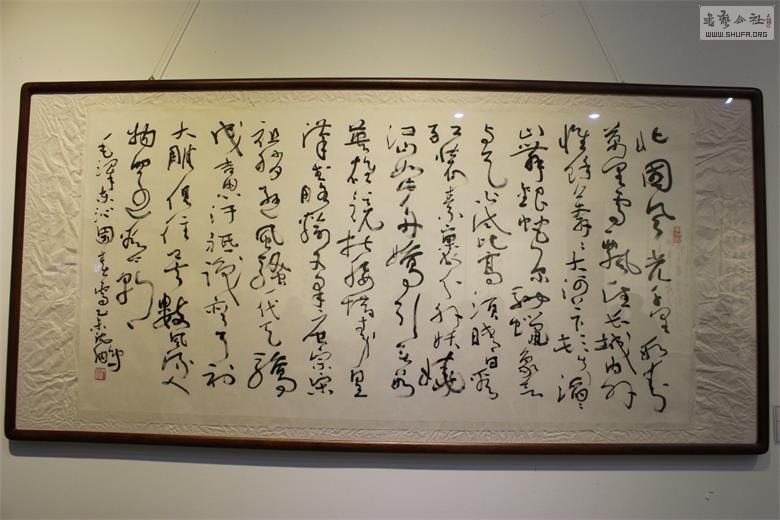 書藝公社
WWW.SHUFA.ORG
北國風光千里冰封
萬里雪飄望長城內外
惟餘莽莽大河上下頓失滔滔
山舞銀蛇原馳蠟象欲
與天公試比高須晴日看
紅裝素裹分外妖嬈
江山如此多嬌引無數
英雄競折腰惜秦皇
漢武略輸文采唐宗宋
祖稍遜風騷一代天驕
成吉思汗祇識彎弓射
大雕俱往矣數風流人
物還看今朝
毛澤東沁園春雪乙未